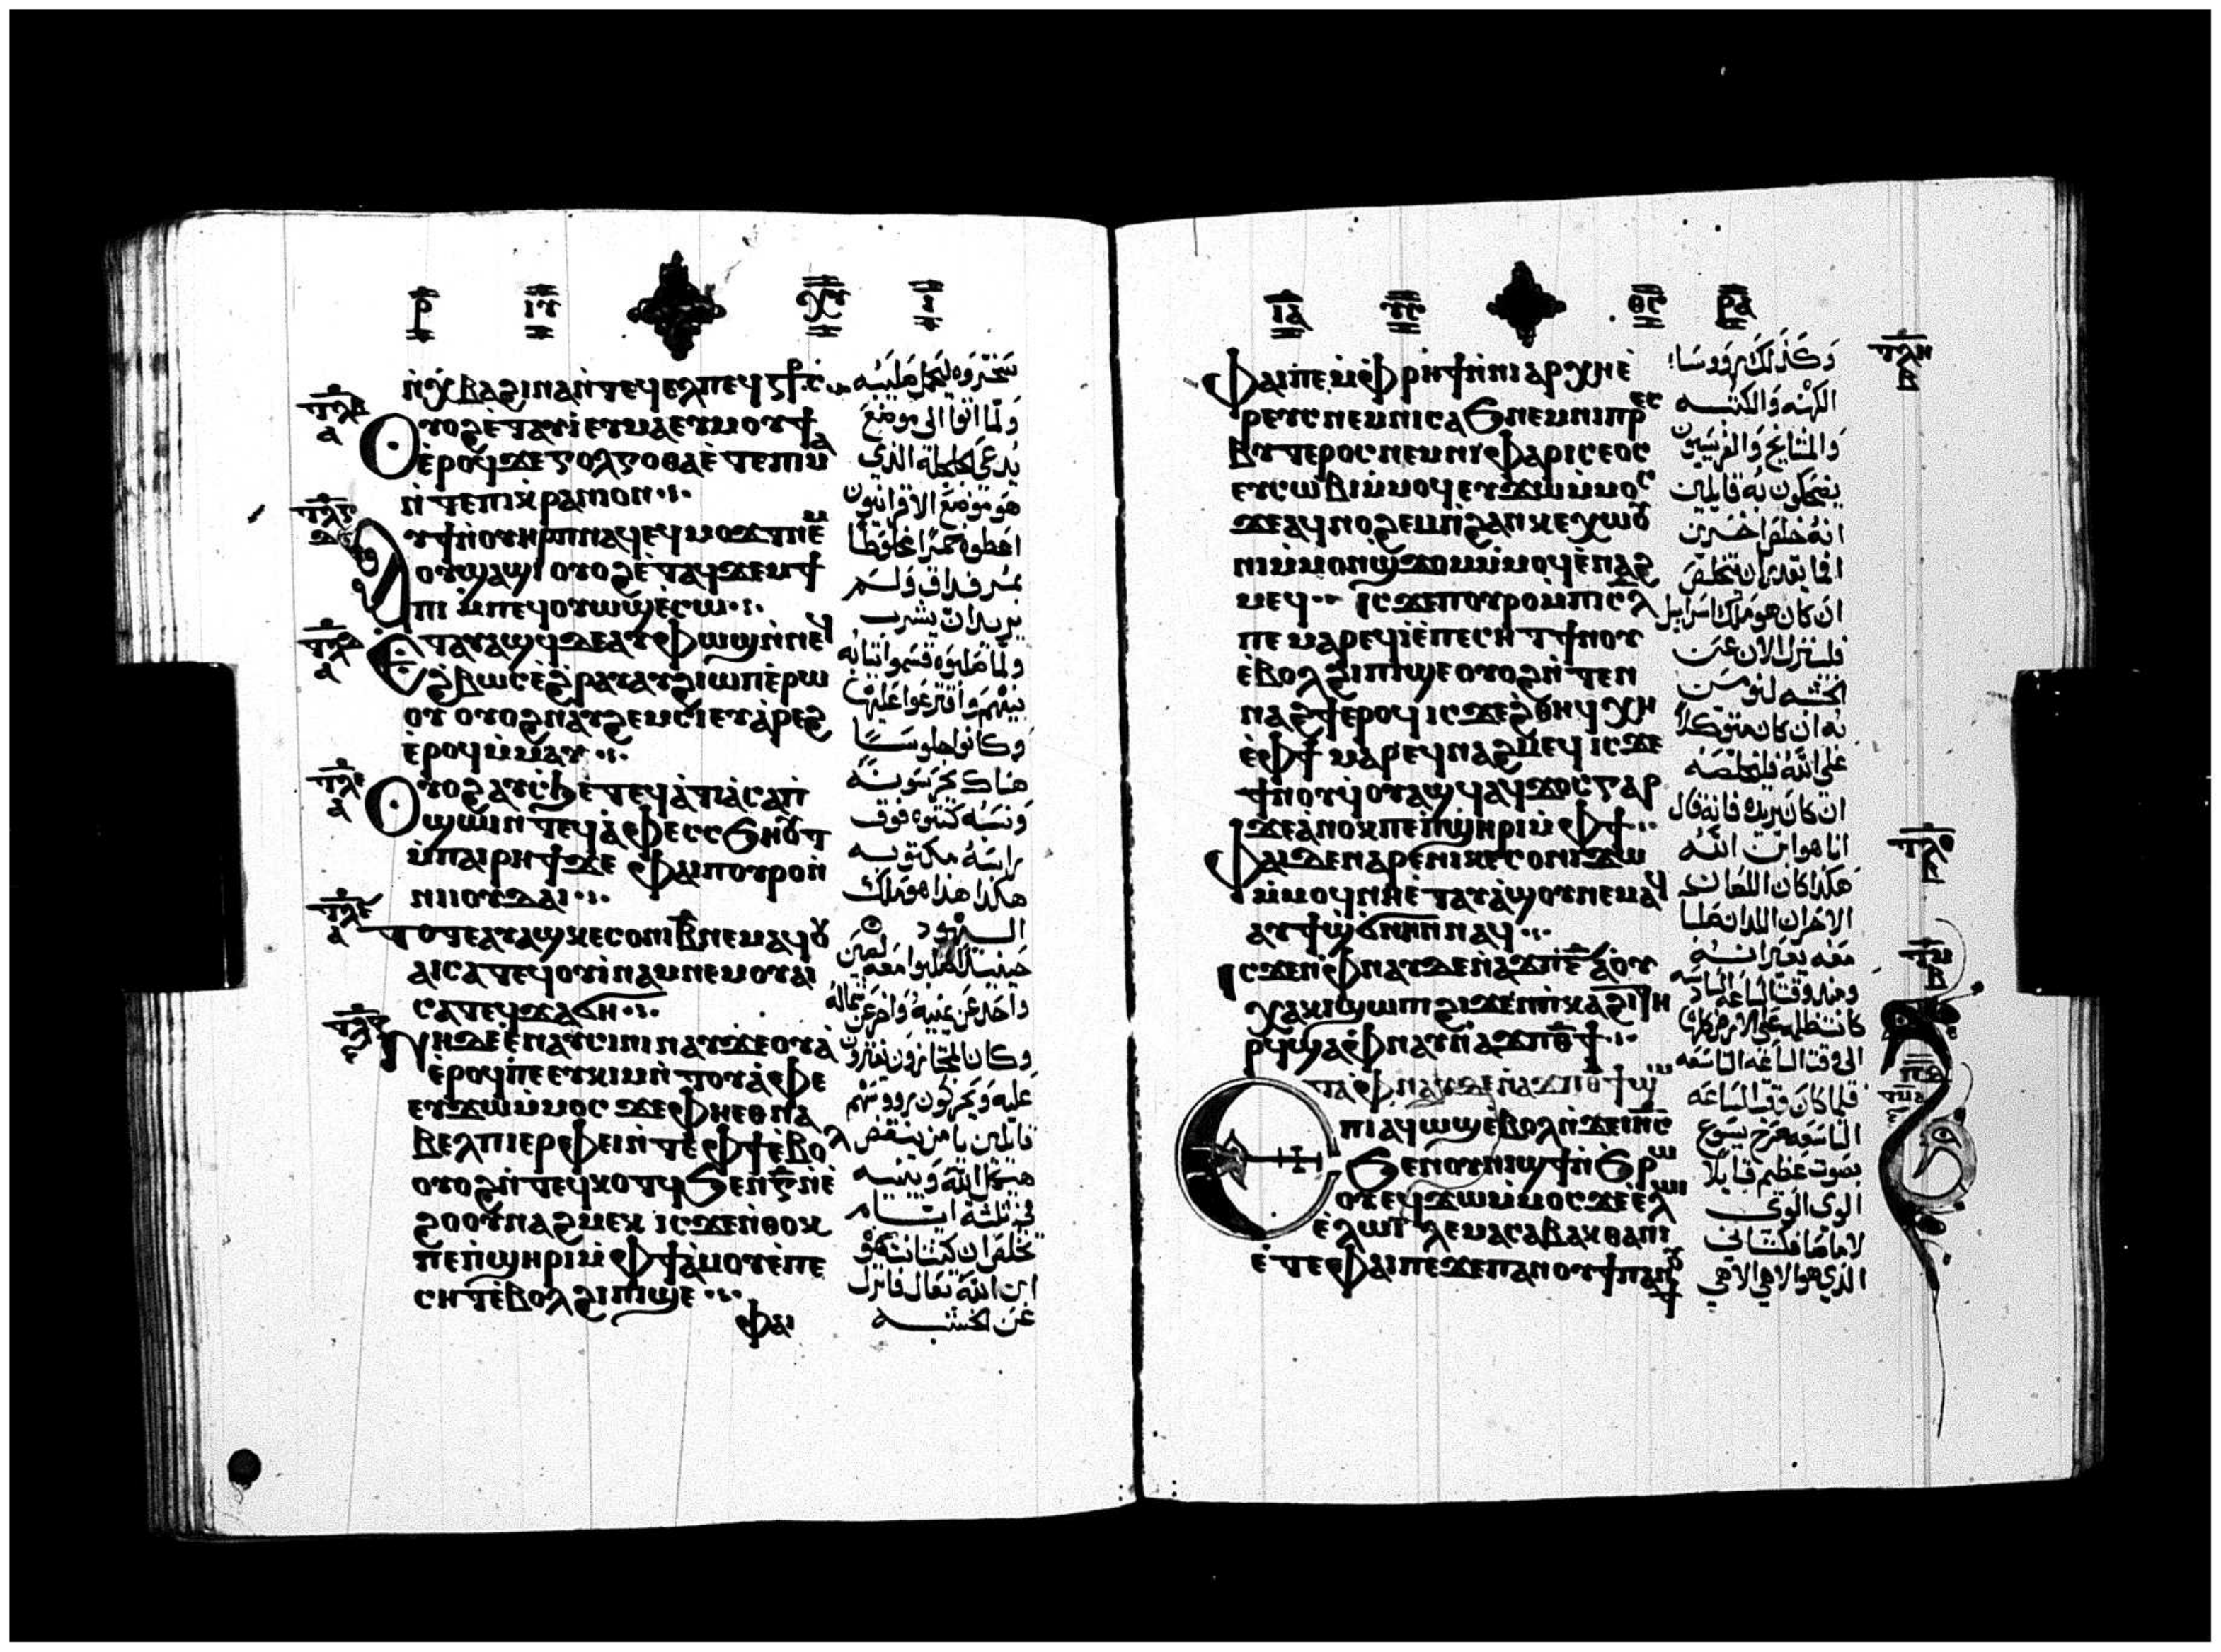 ⲣ̄ ⲓⲩ ⲭⲥ ⲓ̄
ⲛ̀ϫⲃⲁ ϩⲓⲛⲁ ⲛ̀ⲧⲉϥⲉⲗ ⲡⲉϥⲥ̅ⲣ̅ⲥ̅
ⲟⲩⲟϩ ⲉ̀ⲧⲁⲩⲓ̀ ⲉⲩⲙⲁ ⲉⲩⲙⲟⲩϯ
ⲉ̀ⲣⲟϥ ϫⲉ ⲅⲟⲗⲅⲟⲑⲁ ⲉ̀ⲧⲉ ⲡⲓⲙⲁ
ⲛ̀ⲧⲉ ⲡⲓⲭⲣⲁⲛⲓⲟⲛ
ⲁⲩϯ ⲛ̀ⲟⲩⲏⲣⲡ ⲛⲁϥ ⲉϥⲙⲟϫⲧ ⲛⲉⲙ
ⲟⲩϣⲁϣⲓ ⲟⲩⲟϩ ⲉ̀ⲧⲁϥϫⲉⲙϯ
ⲡⲓ ⲙ̀ⲡⲉϥⲟⲩⲱϣ ⲉ̀ⲥⲱ
ⲉ̀ⲧⲁⲩⲁϣϥ ⲇⲉ ⲁⲩⲫⲱϣ ⲛ̀ⲛⲉϥ
ϩ̀ⲃⲱⲥ ⲉ̀ϩⲣⲁⲩ ⲁⲩϩⲓⲱⲡ ⲉ̀ⲣⲱ
ⲟⲩ ⲟⲩⲟϩ ⲛⲁⲩϩⲉⲙⲥⲓ ⲉⲩⲁ̀ⲣⲉϩ
ⲉ̀ⲣⲟϥ ⲙ̀ⲙⲁⲩ
ⲟⲩⲟϩ ⲁⲩⲥϧⲉ ⲧⲉϥⲁ̀ⲧⲓⲁ ⲥⲁⲡ
ϣⲱⲓ ⲛ̀ⲧⲉϥⲁ̀ⲫⲉ ⲉⲥⲥϧⲏⲟⲩⲧ
ⲙ̀ⲡⲁⲓⲣⲏϯ ϫⲉ ⲫⲁⲓ ⲡⲟⲩⲣⲟ ⲛ̀
ⲛⲓⲓⲟⲩⲇⲁⲓ
ⲧⲟⲧⲉ ⲁⲩⲁϣ ⲕⲉⲥⲟⲛⲓ ⲃ̅ ⲛⲉⲙⲁϥ ⲟⲩ
ⲁⲓ ⲥⲁⲧⲉϥⲟⲩⲓ̀ⲛⲁⲙ ⲛⲉⲙ ⲟⲩⲁⲓ
ⲥⲁⲧⲉϥϫⲁϭⲏ
ⲛⲏ ⲇⲉ ⲉ̀ⲛⲁⲩⲥⲓⲛⲓ ⲛⲁⲩϫⲉⲟⲩⲁ̀
ⲉ̀ⲣⲟϥ ⲡⲉ ⲉⲩⲕⲓⲙ ⲛ̀ⲧⲟⲩⲁ̀ⲫⲉ
ⲉⲩϫⲱ ⲙ̀ⲙⲟⲥ ϫⲉ ⲫⲏ ⲉⲑⲛⲁ
ⲃⲉⲗ ⲡⲓⲉⲣⲫⲉⲓ ⲛ̀ⲧⲉ ⲫϯ ⲉ̀ⲃⲟⲗ
ⲟⲩⲟϩ ⲛ̀ⲧⲉϥⲕⲟⲧϥ ϧⲉⲛ ⲅ̅ ⲛ̀ⲉ̀
ϩⲟⲟⲩ ⲛⲁϩⲙⲉⲕ ⲓⲥϫⲉ ⲛ̀ⲑⲟⲕ
ⲡⲉ ⲡ̀ϣⲏⲣⲓ ⲙ̀ⲫϯ ⲁ̀ⲙⲟⲩ ⲉ̀ⲡⲉ
ⲥⲏⲧ ⲉ̀ⲃⲟⲗ ϩⲓ ⲡⲓϣⲉ
ⲫⲁⲓ
سخروه ليحمل صليبه
ولما اتوا الى موضع
يدعى الجلجلة الذي
هو موضع الاقرانيون
اعطوه خمرا مخلوطا
بمر فذاق ولم
يريد ان يشرب
ولما صلبوه قسموا ثيابه
بينهم واقترعوا عليها
وكانوا جلوسا
هناك يحرسونه
ونسبه كتبوه فوق
راسه مكتوبه
هكذا هذا هو ملك
اليهود
حينيذ صلبوا معه لصين
واحد عن يمينه واخر عن شماله
وكان المجتازون يفترون
عليه ويحركون رووسهم
قايلين يا من ينقض
هيكل الله ويبنيه
في ثلثة ايام
خلص ان كنت انت هو
ابن الله تعال فانزل
عن الخشبه
ⲓ̄ⲁ̄ ⲩⲥ ⲑⲥ ⲣ̄ⲁ̄
ⲫⲁⲓ ⲡⲉ ⲙ̀ⲫⲣⲏϯ ⲛ̀ⲛⲓⲁⲣⲭⲏⲉ̀
ⲣⲉⲩⲥ ⲛⲉⲙ ⲛⲓⲥⲁϧ ⲛⲉⲙ ⲛⲓⲡⲣⲉⲥ
ⲃⲩⲧⲉⲣⲟⲥ ⲛⲉⲙ ⲛⲓⲫⲁⲣⲓⲥⲉⲟⲥ
ⲉⲩⲥⲱⲃⲓ ⲙ̀ⲙⲟϥ ⲉⲩϫⲱ ⲙ̀ⲙⲟⲥ
ϫⲉ ⲁϥⲛⲟϩⲉⲙ ⲛ̀ϩⲁⲛⲕⲉⲭⲱⲟⲩ
ⲛⲓ ⲙ̀ⲙⲟⲛ ϣϫⲟⲙ ⲙ̀ⲙⲟϥ ⲉ̀ⲛⲁϩ
ⲙⲉϥ ⲓⲥϫⲉ ⲡⲟⲩⲣⲟ ⲙ̀ⲡⲓⲥⲗ
ⲡⲉ ⲙⲁⲣⲉϥⲓ̀ ⲉ̀ⲡⲉⲥⲏⲧ ϯⲛⲟⲩ
ⲉ̀ⲃⲟⲗ ϩⲓ ⲡⲓϣⲉ ⲟⲩⲟϩ ⲛ̀ⲧⲉⲛ
ⲛⲁϩϯ ⲉⲣⲟϥ ⲓⲥϫⲉ ϩ̀ⲑⲏϥ ⲭⲏ
ⲉ̀ⲫϯ ⲙⲁⲣⲉϥⲛⲁϩⲙⲉϥ ⲓⲥϫⲉ
ϯⲛⲟⲩ ϥⲟⲩⲁϣϥ ⲁϥϫⲟⲥ ⲅⲁⲣ
ϫⲉ ⲁ̀ⲛⲟⲕ ⲡⲉ ⲡ̀ϣⲏⲣⲓ ⲙ̀ⲫϯ
ⲫⲁⲓ ⲇⲉ ⲛⲁⲣⲉ ⲛⲓⲕⲉⲥⲟⲛⲓ ϫⲱ
ⲙ̀ⲙⲟϥ ⲛⲏ ⲉ̀ⲧⲁⲩⲁ̀ϣⲟⲩ ⲛⲉⲙⲁϥ
ⲁⲩϯϣ̀ϭⲛⲏⲓⲛ ⲛⲁϥ
ⲓⲥϫⲉⲛ ⲫⲛⲁⲩ ⲇⲉ ⲛ̀ⲁϫⲡ ⲋ̅ ⲁ̀ ⲟⲩ
ⲭⲁⲕⲓ ϣⲱⲡⲓ ϩⲓϫⲉⲛ ⲡ̀ⲕⲁϩⲓ ⲧⲏ
ⲣϥ ϣⲁ ⲫⲛⲁⲩ ⲛ̀ⲁϫⲡ ⲑ̅ϯ
ⲉ̀ⲧⲁ ⲫⲛⲁⲩ ⲇⲉ ⲛ̀ⲁϫⲡ ⲑ̅ϯ ϣⲱ
ⲡⲓ ⲁϥⲱϣ ⲉ̀ⲃⲟⲗ ⲛ̀ϫⲉ ⲓⲏⲥ
ϧⲉⲛ ⲟⲩⲛⲓϣϯ ⲛ̀ϧⲣⲱ
ⲟⲩ ⲉϥϫⲱ ⲙ̀ⲙⲟⲥ ϫⲉ ⲉ̀ⲗⲱⲓ
ⲉ̀ⲗⲱⲓ ⲗⲉⲙⲁ ⲥⲁⲃⲁⲕⲑⲁⲛⲓ
ⲉ̀ⲧⲉ ⲫⲁⲓ ⲡⲉ ϫⲉ ⲡⲁⲛⲟⲩϯ ⲡⲁⲛⲟⲩϯ
وكذلك رووسا
الكهنه والكتبه
والمشايخ والفريسيون
يضحكون به قايلين
انه خلص اخرين
افما يقدر ان يخلص
ان كان هو ملك اسراييل
فلينزل الان عن
الخشبه لنومن
به ان كان متوكلا
على الله فليخلصه
ان كان يريده فانه قال
انا هو ابن الله
هكذا كان اللصان
الاخران اللذان صلبا
معه يعيرانه
ومنذ وقت الساعه السادسه
كانت ظلمه على الارض كلها
الى وقت الساعه التاسعه
فلما كان وقت الساعه
التاسعه صرخ يسوع
بصوت عظيم قايلا
الوي الوي
لاماصافكتاني
الذي هو الاهي الاهي